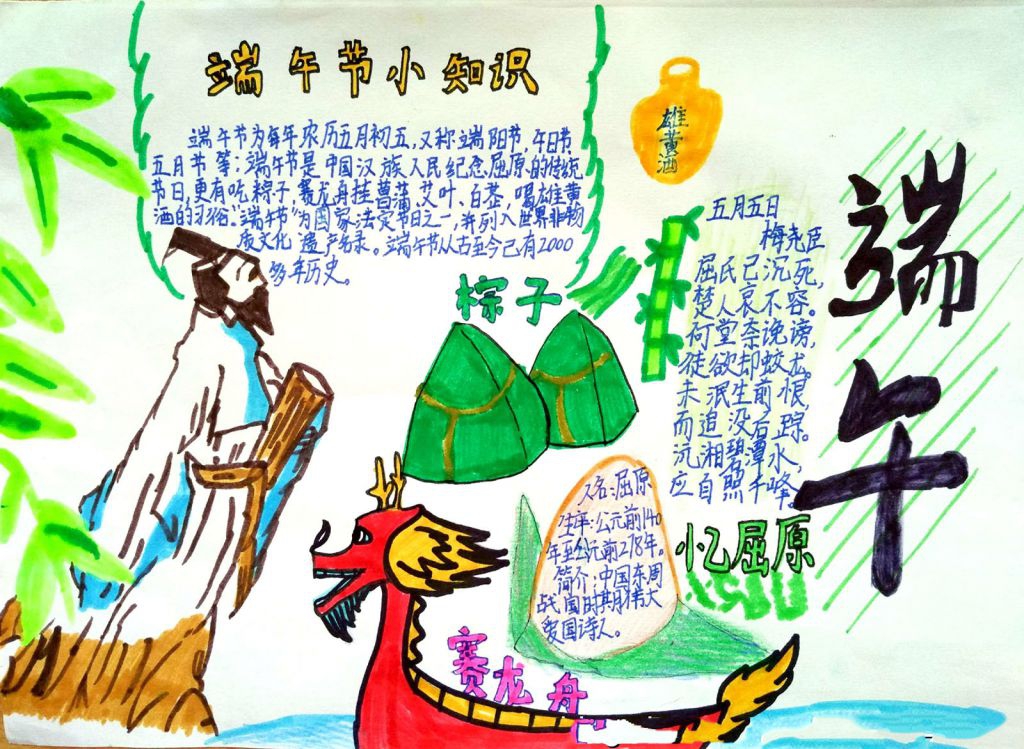 端午节小知识
端午节为每年农历五月初五,又称端阳节,午日节
五月节等.端午节是中国汉族人民纪念屈原的传统
节日,更有吃粽子,赛龙舟挂菖蒲、艾叶、白芷,喝雄黄
酒的习俗."端午节"为国家法定节日之一,并列入世界非物
质文化遗产名录。端午节从古至今已有2000
多年历史。
雄黄酒
端午
五月五日
梅尧臣
屈氏已沉死,
楚人哀不容。
何堂奈谗谤,
徒欲却蛟龙。
未泯生前恨,
而追没后踪。
沅湘碧潭水,
应自照千峰。
粽子
忆屈原
人名:屈原
生平:公元前140
年至公元前278年。
简介:中国东周
战国时期伟大
爱国诗人。
赛龙舟